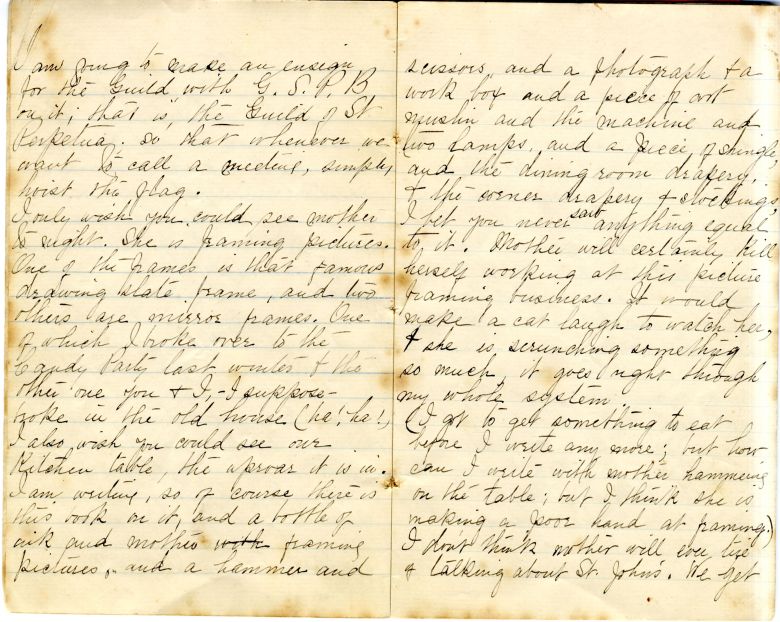 I am going to make an ensign
for the Guild with G. S. P. B
on it, that is, the Guild of St
Perpetua. So that whenever we
want to call a meeting, simply
hoist the flag.
I only wish you could see mother
to night. She is framing pictures.
One of the frames is that famous
drawing slate frame, and two
others are mirror frames. One
of which I broke over to the
Candy Party last winter & the
other one you & I, - I suppose -
broke in the old house (ha! ha!)
I also wish you could see our
Kitchen table, the uproar it is in.
I am writing, so of course there is
this book on it, and a bottle of
ink and mothers with framing
pictures, and a hammer and
scissors and a photograph & a
work box and a piece of art
muslin and the machine and
two lamps, and a piece of shingle
and the diningroom drapery.
& the corner drapery & stockings
I bet you never saw anything equal
to it. Mother will certainly kill
herself working at this picture
framing business. It would
make a cat laugh to watch her,
& she is scrunching something
so much it goes right through
my whole system.
(I got to get something to eat
before I write any more; but how
can I write with mother hammering
on the table; but I think she is
making a poor hand at framing.)
I don't think mother will ever tire
of talking about St. John's. We get